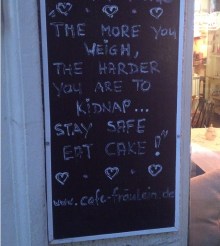 THE MORE YOU
WEIGH,
THE HARDER
YOU ARE TO
KIDNAP...
STAY SAFE
EAT CAKE!"
www.cafe-fräulein.de